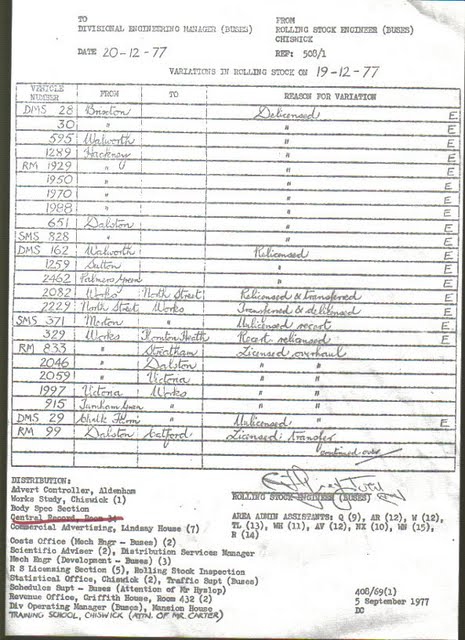 TO
DIVISIONAL ENGINEERING MANAGER (BUSES)
FROM
ROLLING STOCK ENGINEER (BUSES)
CHISWICK
DATE 20-12-77
REF: 508/1
VARIATIONS IN ROLLING STOCK ON 19-12-77
VEHICLE NUMBER FROM TO REASON FOR VARIATION
DMS 28 Brixton Delicensed E
30 " " E
595 Walworth " E
1289 Hackney " E
RM 1929 " " E
1950 " " E
1970 " " E
1988 " " E
651 Dalston " E
SMS 828 " " E
DMS 162 Walworth Relicensed E
1259 Sutton " E
2462 Palmers Green " E
2082 Works North Street Relicensed & transferred E
2229 North Street Works Transferred & delicensed E
SMS 371 Merton " Unlicensed recert E
329 Works Thornton Heath Recert relicensed E
RM 833 " Streatham Licensed overhaul
2046 " Dalston " "
2059 " Victoria " "
1997 Victoria Works " "
915 Turnham Green " " "
DMS 29 Chalk Farm " Unlicensed " E
RM 99 Dalston Catford Licensed: transfer
continued over
ROLLING STOCK ENGINEER (BUSES)
DISTRIBUTION:
Advert Controller, Aldenham
Works Study, Chiswick (1)
Body Spec Section
Central Record, Room
Commercial Advertising, Lindsay House (7)
AREA ADMIN ASSISTANTS: Q (9), AR (12), W (12),
TL (13), WH (11), AV (12), NX (10), WN (15),
R (14)
Costs Office (Mech Engr - Buses) (2)
Scientific Adviser (2), Distribution Services Manager
Mech Engr (Development - Buses) (3)
R S Licensing Section (5), Rolling Stock Inspection
Statistical Office, Chiswick (2), Traffic Supt (Buses)
Schedules Supt - Buses (Attention of Mr Hyslop)
Revenue Office, Griffith House, Room 432 (2)
Div Operating Manager (Buses), Mansion House
TRAINING SCHOOL, CHISWICK (ATTN. OF MR CARTER)
408/69(1)
5 September 1977
DC